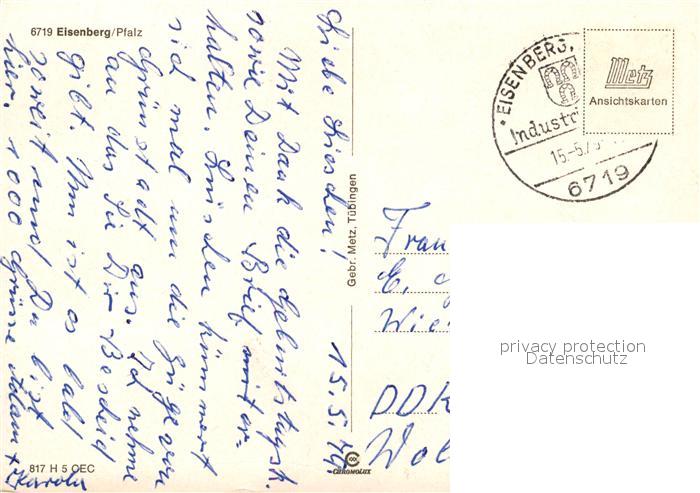 6719 Eisenberg/Pfalz
15.5.
Liebe Lieschen!
Mit Dank die Geburtstagsk.
sowie Deinen Brief mit er-
halten. Lieschen kümmert
sich mal um die Züge von
Grünstadt aus. Ich nehme
an das Sie Dir Bescheid
gibt. Nun ist es bald
soweit und Du bist
hier. 1000 Grüsse Adam +
Karola
817 H 5 CEC
Gebr. Metz, Tübingen
CHROMOLUX
EISENBERG,
Industri
15.-5.7
6719
Metz
Ansichtskarten
Frau
DDR
privacy protection
Datenschutz